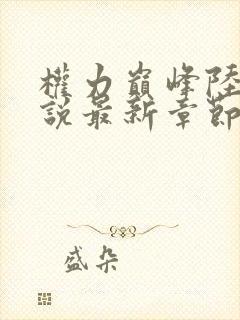 權力巔峰陸
說最新章節
盛朵